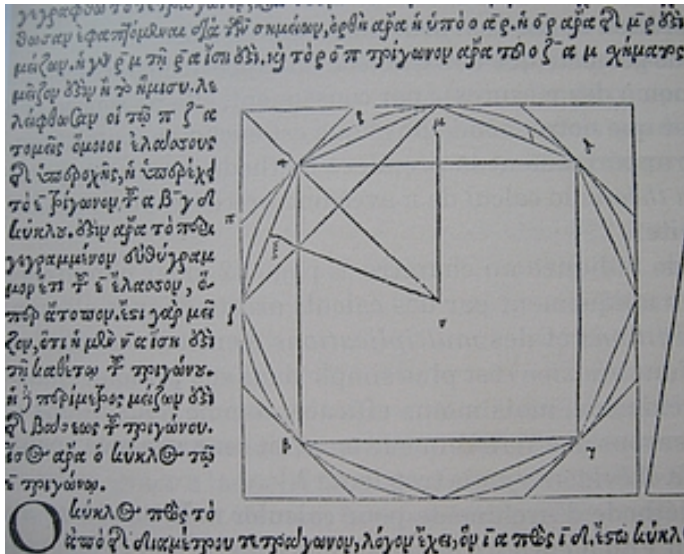 θωσαν ἐφαπτόμεναι διὰ τῶν σημείων, ὀρθὴ ἄρα ἡ ὑπὸ ο α ρ. ἡ ο ρ ἄρα τῆς μ ρ ἐστὶν
μείζων. ἡ γὰρ ρ μ τῇ ρ α ἴση ἐστὶν. καὶ τὸ ρ ο π τρίγωνον ἄρα τοῦ ο ζ α μ χήματος
μεῖζον ἐστὶν ἢ τὸ ἥμισυ. λε
λείφθωσαν οἱ τῷ π ζ α
τομεῖς ὅμοιοι ἐλάσσους
τῆς ὑπεροχῆς, ᾗ ὑπερέχει
τὸ ε τρίγωνον. τοῦ α β γ δ
κύκλου. ἐστὶν ἄρα τὸ περι
γεγραμμένον εὐθύγραμ
μον ἔτι τοῦ ε ἔλασσον, ὅ-
περ ἄτοπον. ἔστι γὰρ μεῖ
ζον, ὅτι ἡ μὲν ν α ἴση ἐστὶ
τῇ καθέτῳ τοῦ τριγώνου.
ἡ δὲ περίμετρος μείζων ἐστὶ
τῆς βάσεως τοῦ τριγώνου.
ἴσος ἄρα ὁ κύκλος τῷ
ε τριγώνῳ.
Ο κύκλος πρὸς τὸ
ἀπὸ τῆς διαμέτρου τετράγωνον, λόγον ἔχει, ὃν ι α πρὸς ι δ. ἔστω κύκλ